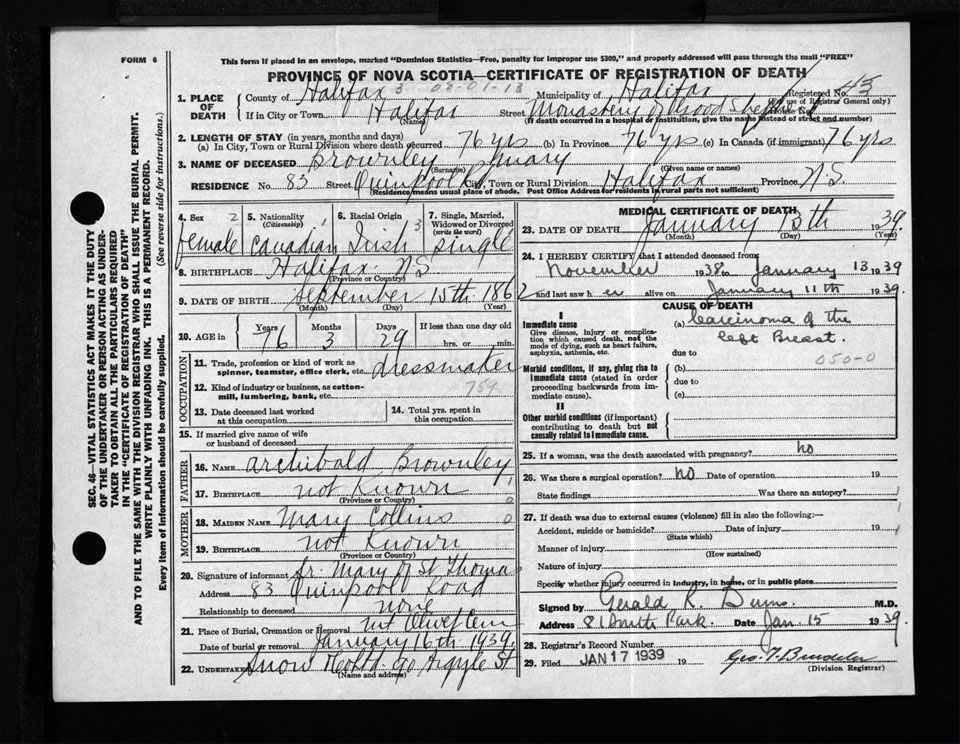 FORM 6
This form if placed in an envelope, marked "Dominion Statistics—Free, penalty for improper use $300," and properly addressed will pass through the mail "FREE"
PROVINCE OF NOVA SCOTIA—CERTIFICATE OF REGISTRATION OF DEATH
SEC. 46—VITAL STATISTICS ACT MAKES IT THE DUTY
OF THE UNDERTAKER OR PERSON ACTING AS UNDER-
TAKER TO OBTAIN ALL THE PARTICULARS REQUIRED
IN THE "CERTIFICATE OF REGISTRATION OF DEATH"
AND TO FILE THE SAME WITH THE DIVISION REGISTRAR WHO SHALL ISSUE THE BURIAL PERMIT.
WRITE PLAINLY WITH UNFADING INK. THIS IS A PERMANENT RECORD.
Every item of information should be carefully supplied. (See reverse side for instructions.)
1. PLACE OF DEATH
County of Halifax 3-08-01-13 Municipality of Halifax Registered No. 43
(For use of Registrar General only)
If in City or Town Halifax Street Monastery of Good Shepherd House No.
(Name) (If death occurred in a hospital or institution, give the name instead of street and number)
2. LENGTH OF STAY (in years, months and days)
(a) In City, Town or Rural Division where death occurred 76 yrs (b) In Province 76 yrs (c) In Canada (if immigrant) 76 yrs
3. NAME OF DECEASED Brownley Mary
(Surname) (Given name or names)
RESIDENCE No. 83 Street Quinpool Rd City, Town or Rural Division Halifax Province N.S.
(Residence means usual place of abode. Post Office Address for residents in rural parts not sufficient)
4. Sex 2 female
5. Nationality (Citizenship) 1 Canadian
6. Racial Origin 3 Irish
7. Single, Married, Widowed or Divorced (write the word) single
8. BIRTHPLACE Halifax N.S.
(Province or Country)
9. DATE OF BIRTH September 15th 1862
(Month) (Day) (Year)
10. AGE in Years 76 Months 3 Days 29 If less than one day old hrs. or min.
OCCUPATION
11. Trade, profession or kind of work as spinner, teamster, office clerk, etc. dressmaker
12. Kind of industry or business, as cotton-mill, lumbering, bank, etc. 759
13. Date deceased last worked at this occupation
14. Total yrs. spent in this occupation
15. If married give name of wife or husband of deceased
FATHER
16. NAME Archibald Brownley
17. BIRTHPLACE not Known 1 0
(Province or Country)
MOTHER
18. MAIDEN NAME Mary Collins 0
19. BIRTHPLACE not Known
(Province or Country)
20. Signature of informant Sr. Mary of St Thomas
Address 83 Quinpool Road
Relationship to deceased none
21. Place of Burial, Cremation or Removal Mt Olivet Cem
Date of burial or removal January 16th 1939
22. Undertaker Snow & Co Ltd. 90 Argyle St
(Name and address)
MEDICAL CERTIFICATE OF DEATH
23. DATE OF DEATH January 13th 1939
(Month) (Day) (Year)
24. I HEREBY CERTIFY that I attended deceased from
November 1938 to January 13 1939
and last saw her alive on January 11th 1939.
CAUSE OF DEATH
I
Immediate cause
Give disease, injury or complication which caused death, not the mode of dying, such as heart failure, asphyxia, asthenia, etc.
(a) Carcinoma of the
left Breast.
due to 050-0
Morbid conditions, if any, giving rise to immediate cause (stated in order proceeding backwards from immediate cause).
(b)
due to
(c)
II
Other morbid conditions (if important) contributing to death but not causally related to immediate cause.
25. If a woman, was the death associated with pregnancy? no
26. Was there a surgical operation? NO Date of operation 19
State findings Was there an autopsy?
27. If death was due to external causes (violence) fill in also the following:—
Accident, suicide or homicide? Date of injury 19
(State which)
Manner of injury
(How sustained)
Nature of injury
Specify whether injury occurred in industry, in home, or in public place
Signed by Gerald R. Burns. M.D.
Address 81 Smith Park. Date Jan. 15 1939
28. Registrar's Record Number
29. Filed JAN 17 1939 19
(Division Registrar)